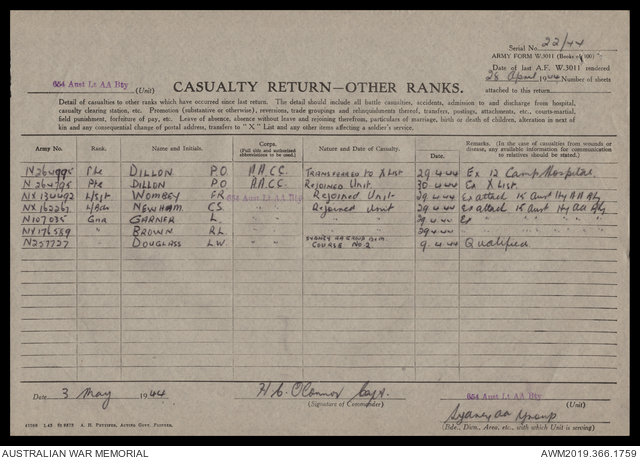 Serial No. 22/44
ARMY FORM W.3011 (Books of 100)
Date of last A.F. W.3011 rendered
28 April 1944 Number of sheets
attached to this return
654 Aust Lt AA Bty (Unit)
CASUALTY RETURN—OTHER RANKS.
Detail of casualties to other ranks which have occurred since last return. The detail should include all battle casualties, accidents, admission to and discharge from hospital,
casualty clearing station, etc. Promotion (substantive or otherwise), reversions, trade groupings and relinquishments thereof, transfers, postings, attachments, etc., courts-martial,
field punishment, forfeiture of pay, etc. Leave of absence, absence without leave and rejoining therefrom, particulars of marriage, birth or death of children, alteration in next of
kin and any consequential change of postal address, transfers to "X" List and any other items affecting a soldier's service.
Army No. Rank. Name and Initials. Corps. (Full title and authorized abbreviations to be used.) Nature and Date of Casualty. Date. Remarks. (In the case of casualties from wounds or disease, any available information for communication to relatives should be stated.)
N264995 Pte DILLON P.O. A.A.C.C. TRANSFERRED TO X LIST 29.4.44 Ex 12 Camp Hospital.
N264995 Pte DILLON P.O. A.A.C.C. REJOINED Unit. 30.4.44 Ex X List.
654 Aust Lt AA Bty
L/Sgt WOMBEY F.R. Rejoined Unit 29.4.44 Ex attach 15 Aust Hy AA Bty
NX162267 L/Bdr NEWHAM C.S. " " Rejoined Unit 29.4.44 Ex attach 15 Aust Hy AA Bty
N107035 Gnr GARNER L. " " " " 29.4.44 Ex " " " " "
NX176559 " BROWN R.L. " " " " 29.4.44 " " " " "
N257727 DOUGLASS L.W. " " COURSE No 2. 9.4.44 Qualified
Date 3 May 1944
H.C. O'Connor Capt.
(Signature of Commander)
654 Aust Lt AA Bty (Unit)
Sydney AA Group
(Bde., Divn., Area, etc., with which Unit is serving)
A. H. PETTIFER, ACTING GOVT. PRINTER.
AUSTRALIAN WAR MEMORIAL
AWM2019.366.1759